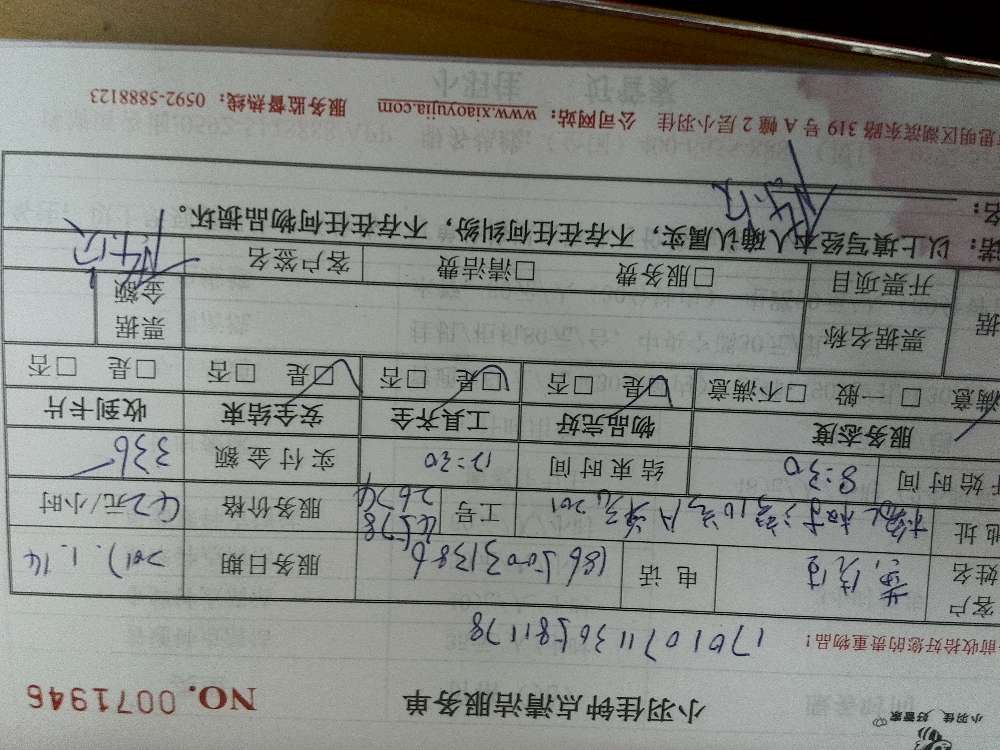 小羽佳 好管家
小羽佳钟点清洁服务单 NO.0071946
前收拾好您的贵重物品！ 1701071136581178
客户姓名 电话 186 5003 1386 服务日期 2017.1.14
地址 10号A 201 工号 4578 2674 服务价格 42元/小时
开始时间 8:30 结束时间 12:30 实付金额 336
服务态度 物品完好 工具齐全 安全结束 收到卡片
满意 □一般 □不满意 □是 □否 □是 □否 □是 □否 □是 □否
据 票据名称 票据金额
开票项目 □服务费 □清洁费 客户签名
诺：以上填写经本人确认属实，不存在任何纠纷，不存在任何物品损坏。
名：
思明区湖滨东路 319 号 A 幢 2 层小羽佳 公司网站：www.xiaoyujia.com 服务监督热线：0592-5888123